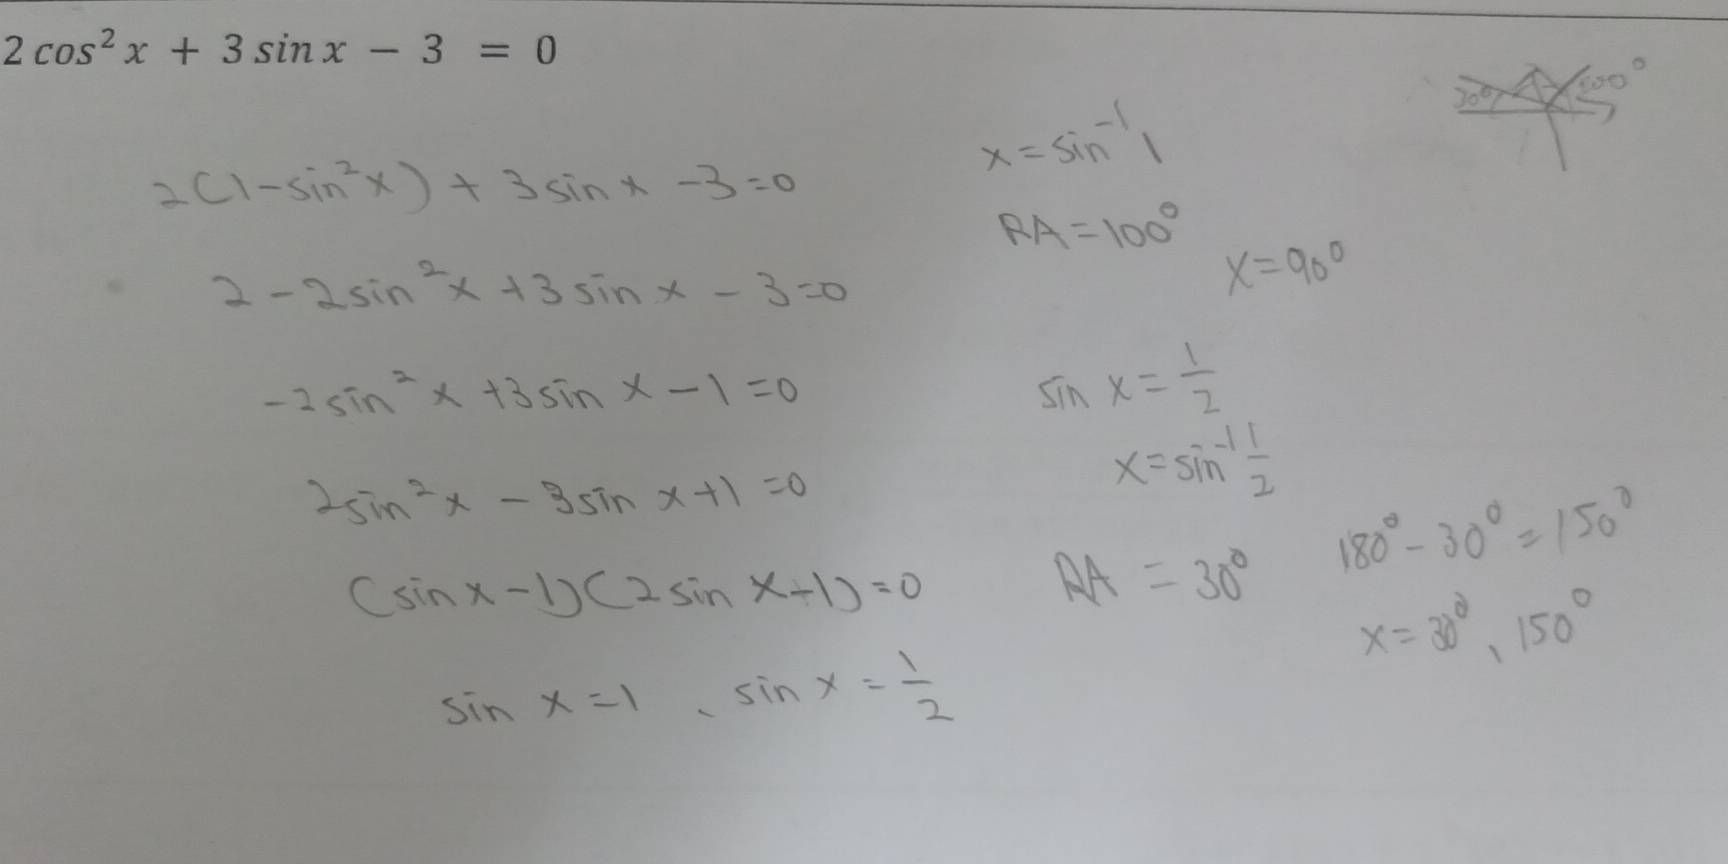 2 cos² x + 3 sin x − 3 = 0
2(1-sin²x) + 3sin x -3=0
2-2sin²x+3sin x-3=0
-2sin²x+3sin x-1=0
2sin²x-3sin x+1=0
(sin x-1)(2sin x+1)=0
sin x=1, sin x=1/2
x=sin⁻¹1
RA=100°
x=90°
sin x=1/2
x=sin⁻¹ 1/2
RA=30°
180°-30°=150°
x=30°, 150°
30°